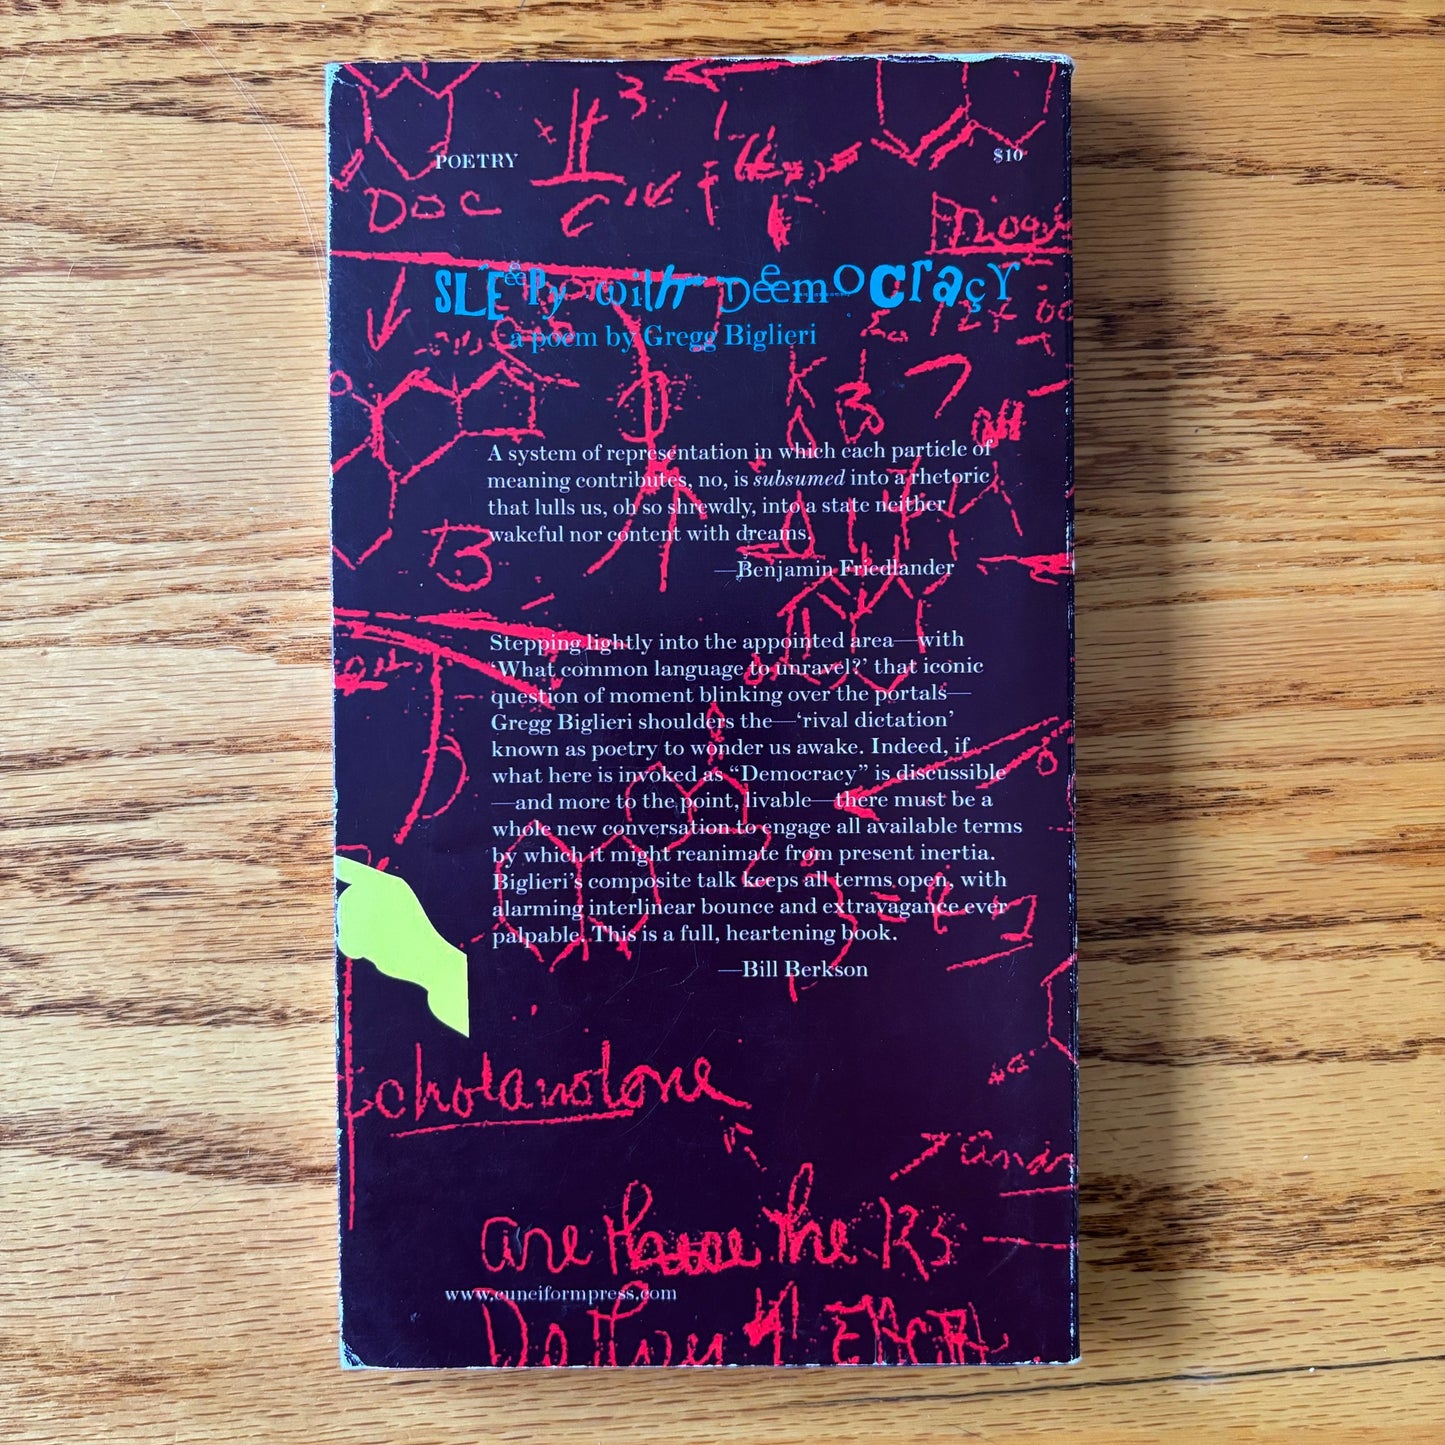 POETRY
$10
SLEeePy with Deemocracy
a poem by Gregg Biglieri
A system of representation in which each particle of
meaning contributes, no, is subsumed into a rhetoric
that lulls us, oh so shrewdly, into a state neither
wakeful nor content with dreams.
—Benjamin Friedlander
Stepping lightly into the appointed area—with
‘What common language to unravel?’ that iconic
question of moment blinking over the portals—
Gregg Biglieri shoulders the—‘rival dictation’
known as poetry to wonder us awake. Indeed, if
what here is invoked as “Democracy” is discussible
—and more to the point, livable—there must be a
whole new conversation to engage all available terms
by which it might reanimate from present inertia.
Biglieri’s composite talk keeps all terms open, with
alarming interlinear bounce and extravagance ever
palpable. This is a full, heartening book.
—Bill Berkson
DOC
B
D
are the Rs
www.cuneiformpress.com